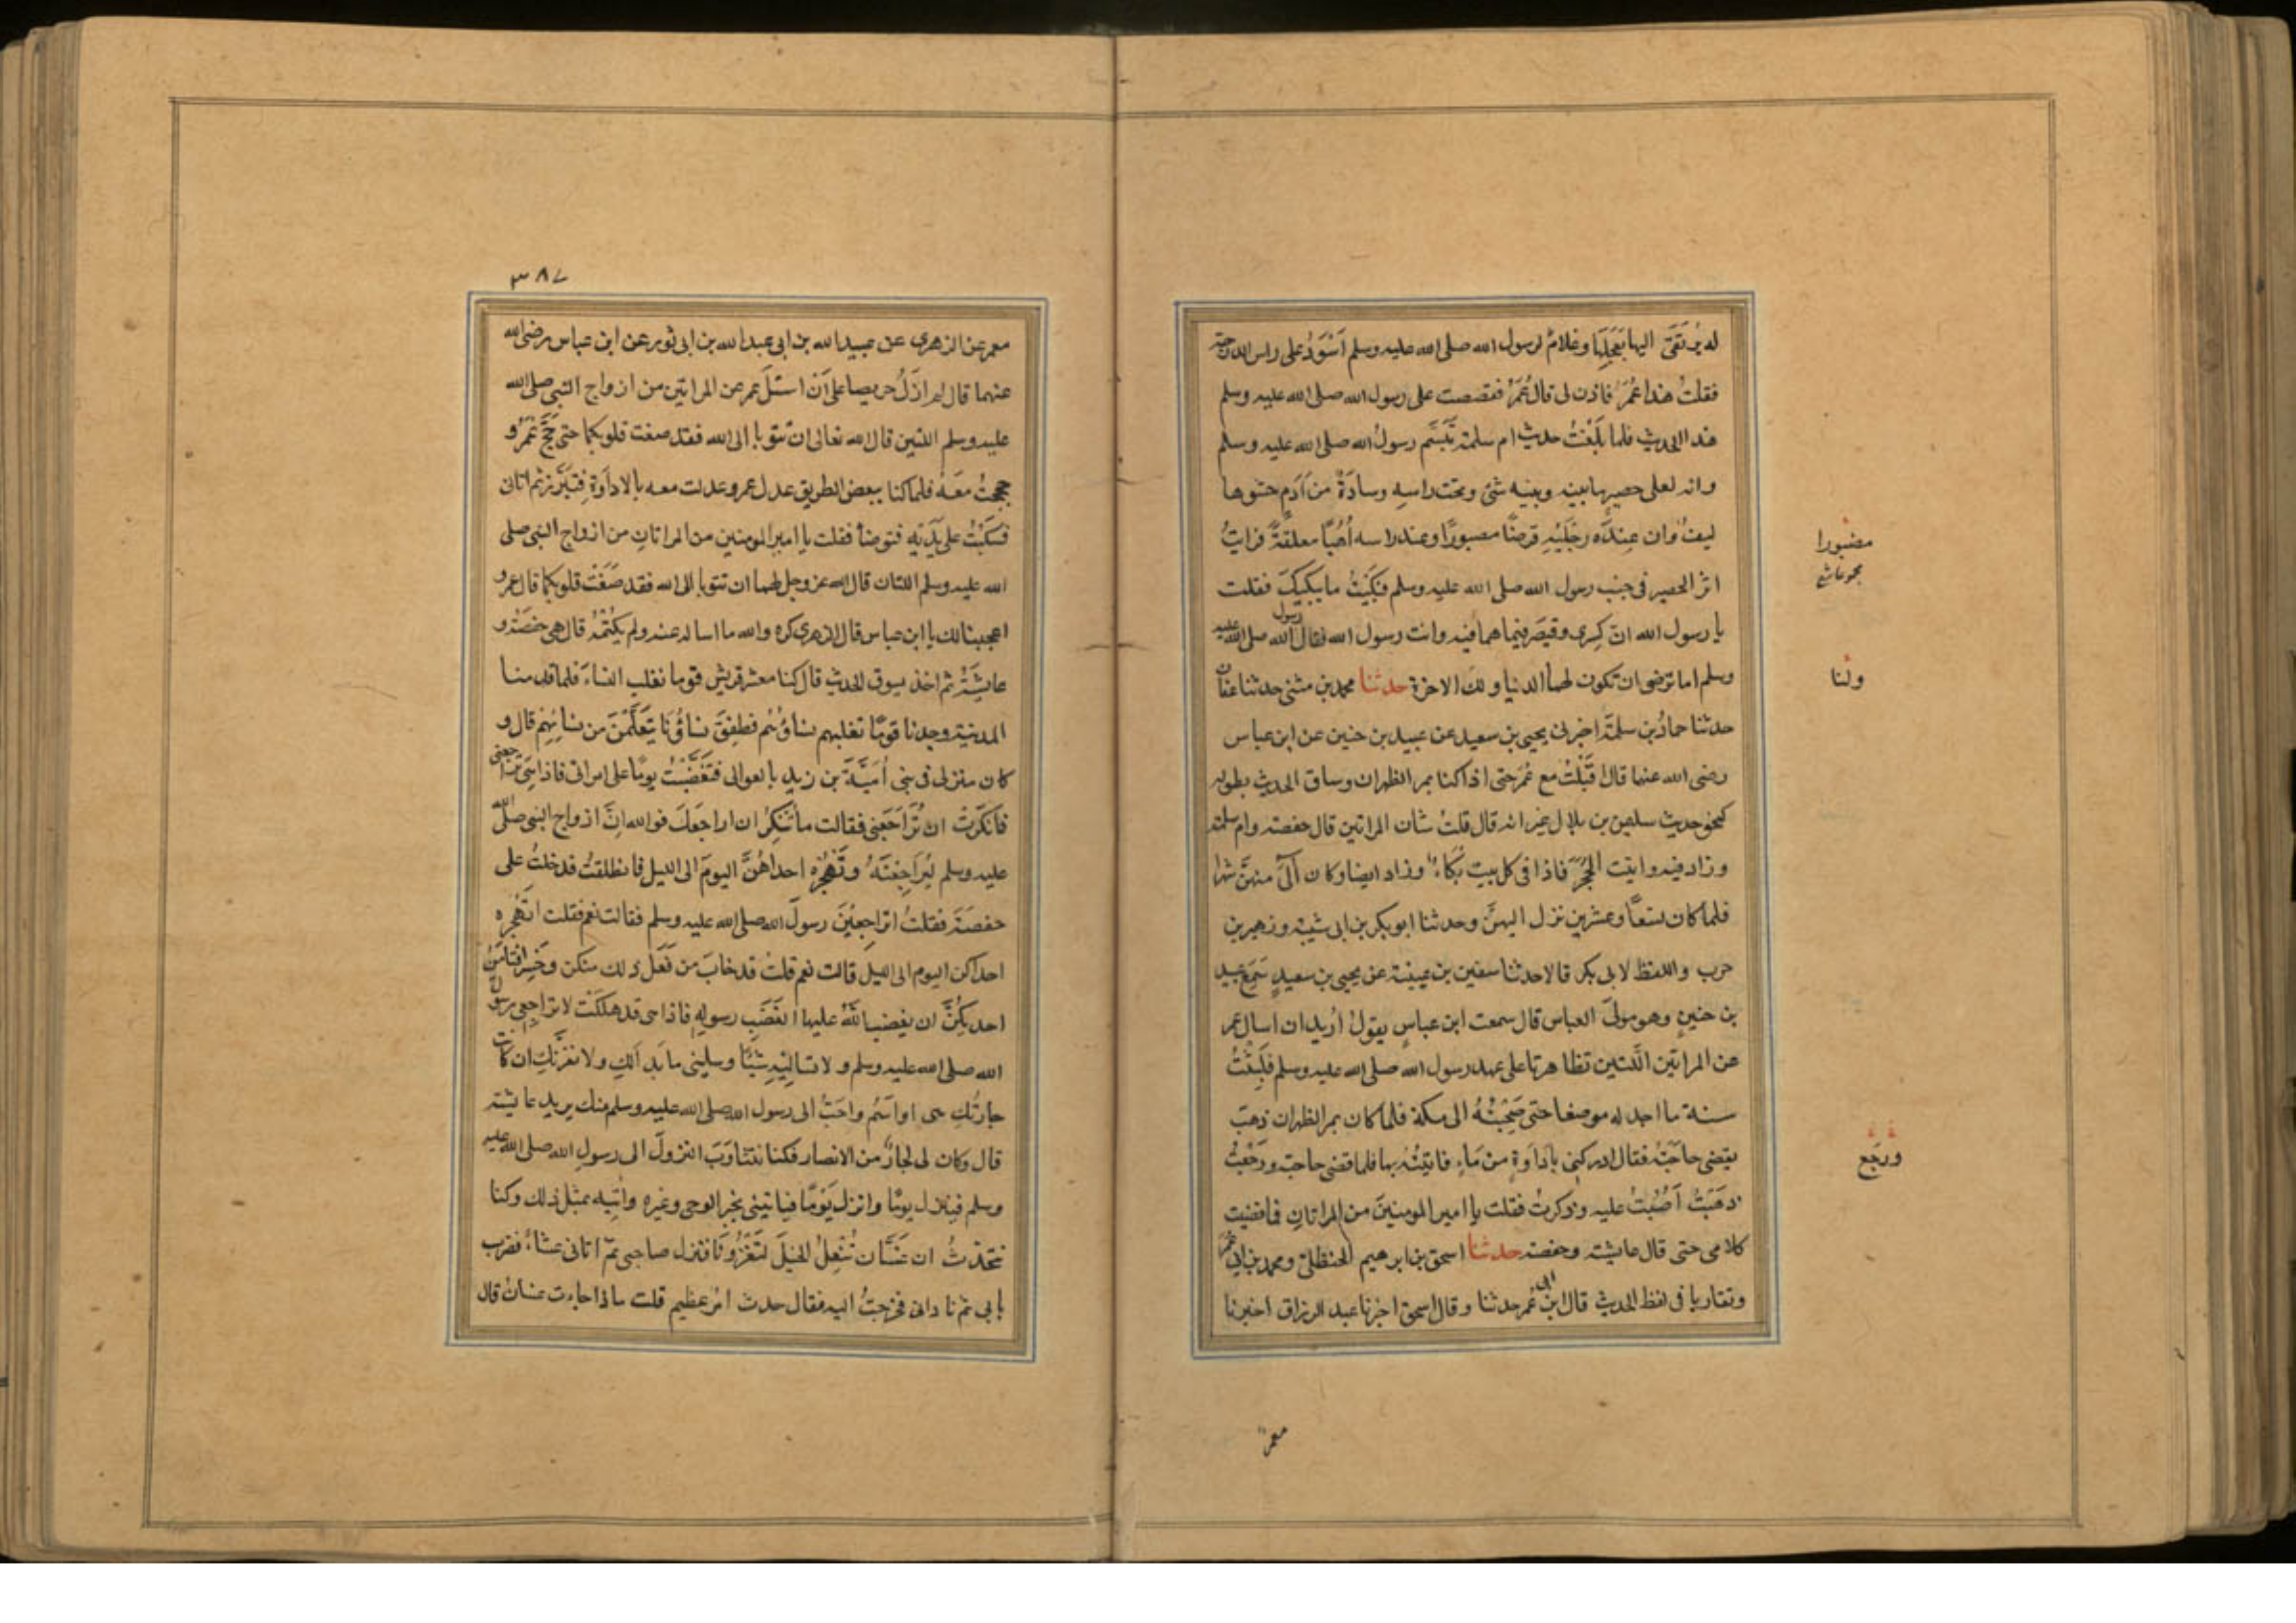 له يُرتقى اليها بعجلها وغلام لرسول الله صلى الله عليه وسلم اسود على راس الدرجة
فقلت هذا عمر فاذن لى قال عمر فقصصت على رسول الله صلى الله عليه وسلم
هذا الحديث فلما بلغت حديث ام سلمة تبسم رسول الله صلى الله عليه وسلم
وانه لعلى حصير ما بينه وبينه شئ وتحت راسه وسادة من ادم حشوها
ليف وان عند رجليه قرضا مصبورا وعند راسه أُهُبًا معلقة فرايت
اثر الحصير فى جنب رسول الله صلى الله عليه وسلم فبكيت ما يبكيك فقلت
يا رسول الله ان كسرى وقيصر فيما هما فيه وانت رسول الله فقال رسول الله صلى الله عليه
وسلم اما ترضى ان تكون لهما الدنيا ولك الاخرة حدثنا محمد بن مثنى حدثنا عفان
حدثنا حماد بن سلمة اخبرنى يحيى بن سعيد عن عبيد بن حنين عن ابن عباس
رضى الله عنهما قال اقبلت مع عمر حتى اذا كنا بمر الظهران وساق الحديث بطوله
كنحو حديث سليمن بن بلال غير انه قال قلت شان المراتين قال حفصة وام سلمة
وزاد فيه واتيت الحُجَر فاذا فى كل بيت بكاء وزاد ايضا وكان آلى منهن شهرا
فلما كان تسعا وعشرين نزل اليهن وحدثنا ابو بكر بن ابى شيبة وزهير بن
حرب واللفظ لابى بكر قالا حدثنا سفين بن عيينة عن يحيى بن سعيد سمع عبيد
بن حنين وهو مولى العباس قال سمعت ابن عباس يقول اريد ان اسال عمر
عن المراتين اللتين تظاهرتا على عهد رسول الله صلى الله عليه وسلم فلبثت
سنة ما اجد له موضعا حتى صحبته الى مكة فلما كان بمر الظهران ذهب
يقضى حاجته فقال ادركنى باداوة من ماء فاتيته بها فلما قضى حاجته ورجعت
ذهبت اصبت عليه وذكرت فقلت يا امير المومنين من المراتان فما قضيت
كلامى حتى قال عايشة وحفصة حدثنا اسحق بن ابرهيم الحنظلى ومحمد بن ابى عمر
وتقاربا فى لفظ الحديث قال ابن ابى عمر حدثنا وقال اسحق اخبرنا عبد الرزاق اخبرنا
مضبورا
مجموعا
ولنا
ورجع
معمر
٣٨٧
معمر عن الزهرى عن عبيد الله بن ابى عبد الله بن ابى ثور عن ابن عباس رضى الله
عنهما قال لم ازل حريصا على ان اسئل عمر عن المراتين من ازواج النبى صلى الله
عليه وسلم اللتين قال الله تعالى ان تتوبا الى الله فقد صغت قلوبكما حتى حج عمر و
حججت معه فلما كنا ببعض الطريق عدل عمر وعدلت معه بالاداوة فتبرز ثم اتانى
فسكبت على يديه فتوضأ فقلت يا امير المومنين من المراتان من ازواج النبى صلى
الله عليه وسلم اللتان قال الله عز وجل لهما ان تتوبا الى الله فقد صغت قلوبكما قال عمر و
اعجبا لك يا ابن عباس قال الزهرى كره والله ما ساله عنه ولم يكتمه قال هى حفصة و
عايشة ثم اخذ يسوق الحديث قال كنا معشر قريش قوما نغلب النساء فلما قدمنا
المدينة وجدنا قوما تغلبهم نساؤهم فطفق نساؤنا يتعلمن من نسائهم قال و
كان منزلى فى بنى امية بن زيد بالعوالى فتغضبت يوما على امراتى فاذا هى تراجعنى
فانكرت ان تراجعنى فقالت ما تنكر ان اراجعك فوالله ان ازواج النبى صلى الله
عليه وسلم ليراجعنه وتهجره احداهن اليوم الى الليل فانطلقت فدخلت على
حفصة فقلت اتراجعين رسول الله صلى الله عليه وسلم فقالت نعم فقلت اتهجره
احداكن اليوم الى الليل قالت نعم قلت قد خاب من فعل ذلك منكن وخسر افتامن
احديكن ان يغضب الله عليها لغضب رسوله فاذا هى قد هلكت لا تراجعى رسول
الله صلى الله عليه وسلم ولا تساليه شيئا وسلينى ما بدا لك ولا تغرنك ان كانت
جارتك هى اوسم واحب الى رسول الله صلى الله عليه وسلم منك يريد عايشة
قال وكان لى جار من الانصار فكنا نتناوب النزول الى رسول الله صلى الله عليه
وسلم فينزل يوما وانزل يوما فياتينى بخبر الوحى وغيره واتيه بمثل ذلك وكنا
نتحدث ان غسان تنعل الخيل لتغزونا فنزل صاحبى ثم اتانى عشاء فضرب
بابى ثم نادانى فخرجت اليه فقال حدث امر عظيم قلت ماذا اجاءت غسان قال